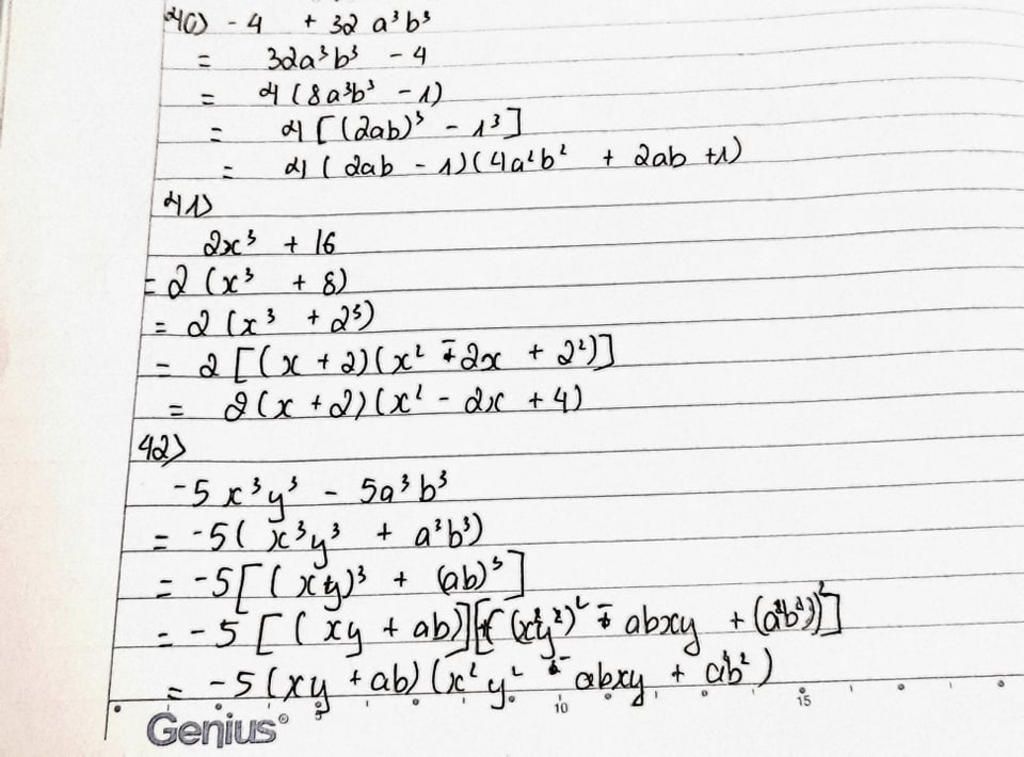 40) -4 + 32 a³b³
= 32a³b³ - 4
= 4 (8a³b³ - 1)
= 4 [(2ab)³ - 1³]
= 4 (2ab - 1)(4a²b² + 2ab + 1)
41)
2x³ + 16
= 2 (x³ + 8)
= 2 (x³ + 2³)
= 2 [(x + 2)(x² - 2x + 2²)]
= 2(x + 2)(x² - 2x + 4)
42)
-5 x³y³ - 5a³b³
= -5( x³y³ + a³b³)
= -5[(xy)³ + (ab)³]
= -5 [(xy + ab)][(x²y²)² - abxy + (a²b²)²]
= -5 (xy + ab) (x²y² - abxy + a²b²)
5 10 15
Genius®